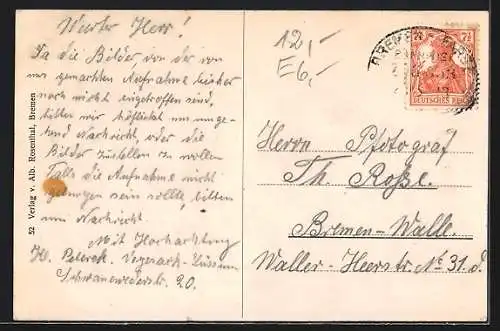 Werter Herr!
Da die Bilder von der von
uns gemachten Aufnahme bisher
noch nicht eingetroffen sind,
bitten wir höflichst um umge-
hend Nachricht, oder die
Bilder zustellen zu wollen
Falls die Aufnahme nicht
gelungen sein sollte, bitten
um Nachricht.
Mit Hochachtung
H. Vegesack-
20.
52 Verlag v. Alb. Rosenthal, Bremen
12,-
E6,-
BREMEN
7½
DEUTSCHES REICH
Herrn Photograf
Th. Roße.
Bremen-Walle.
Waller-Heerstr. No 31.